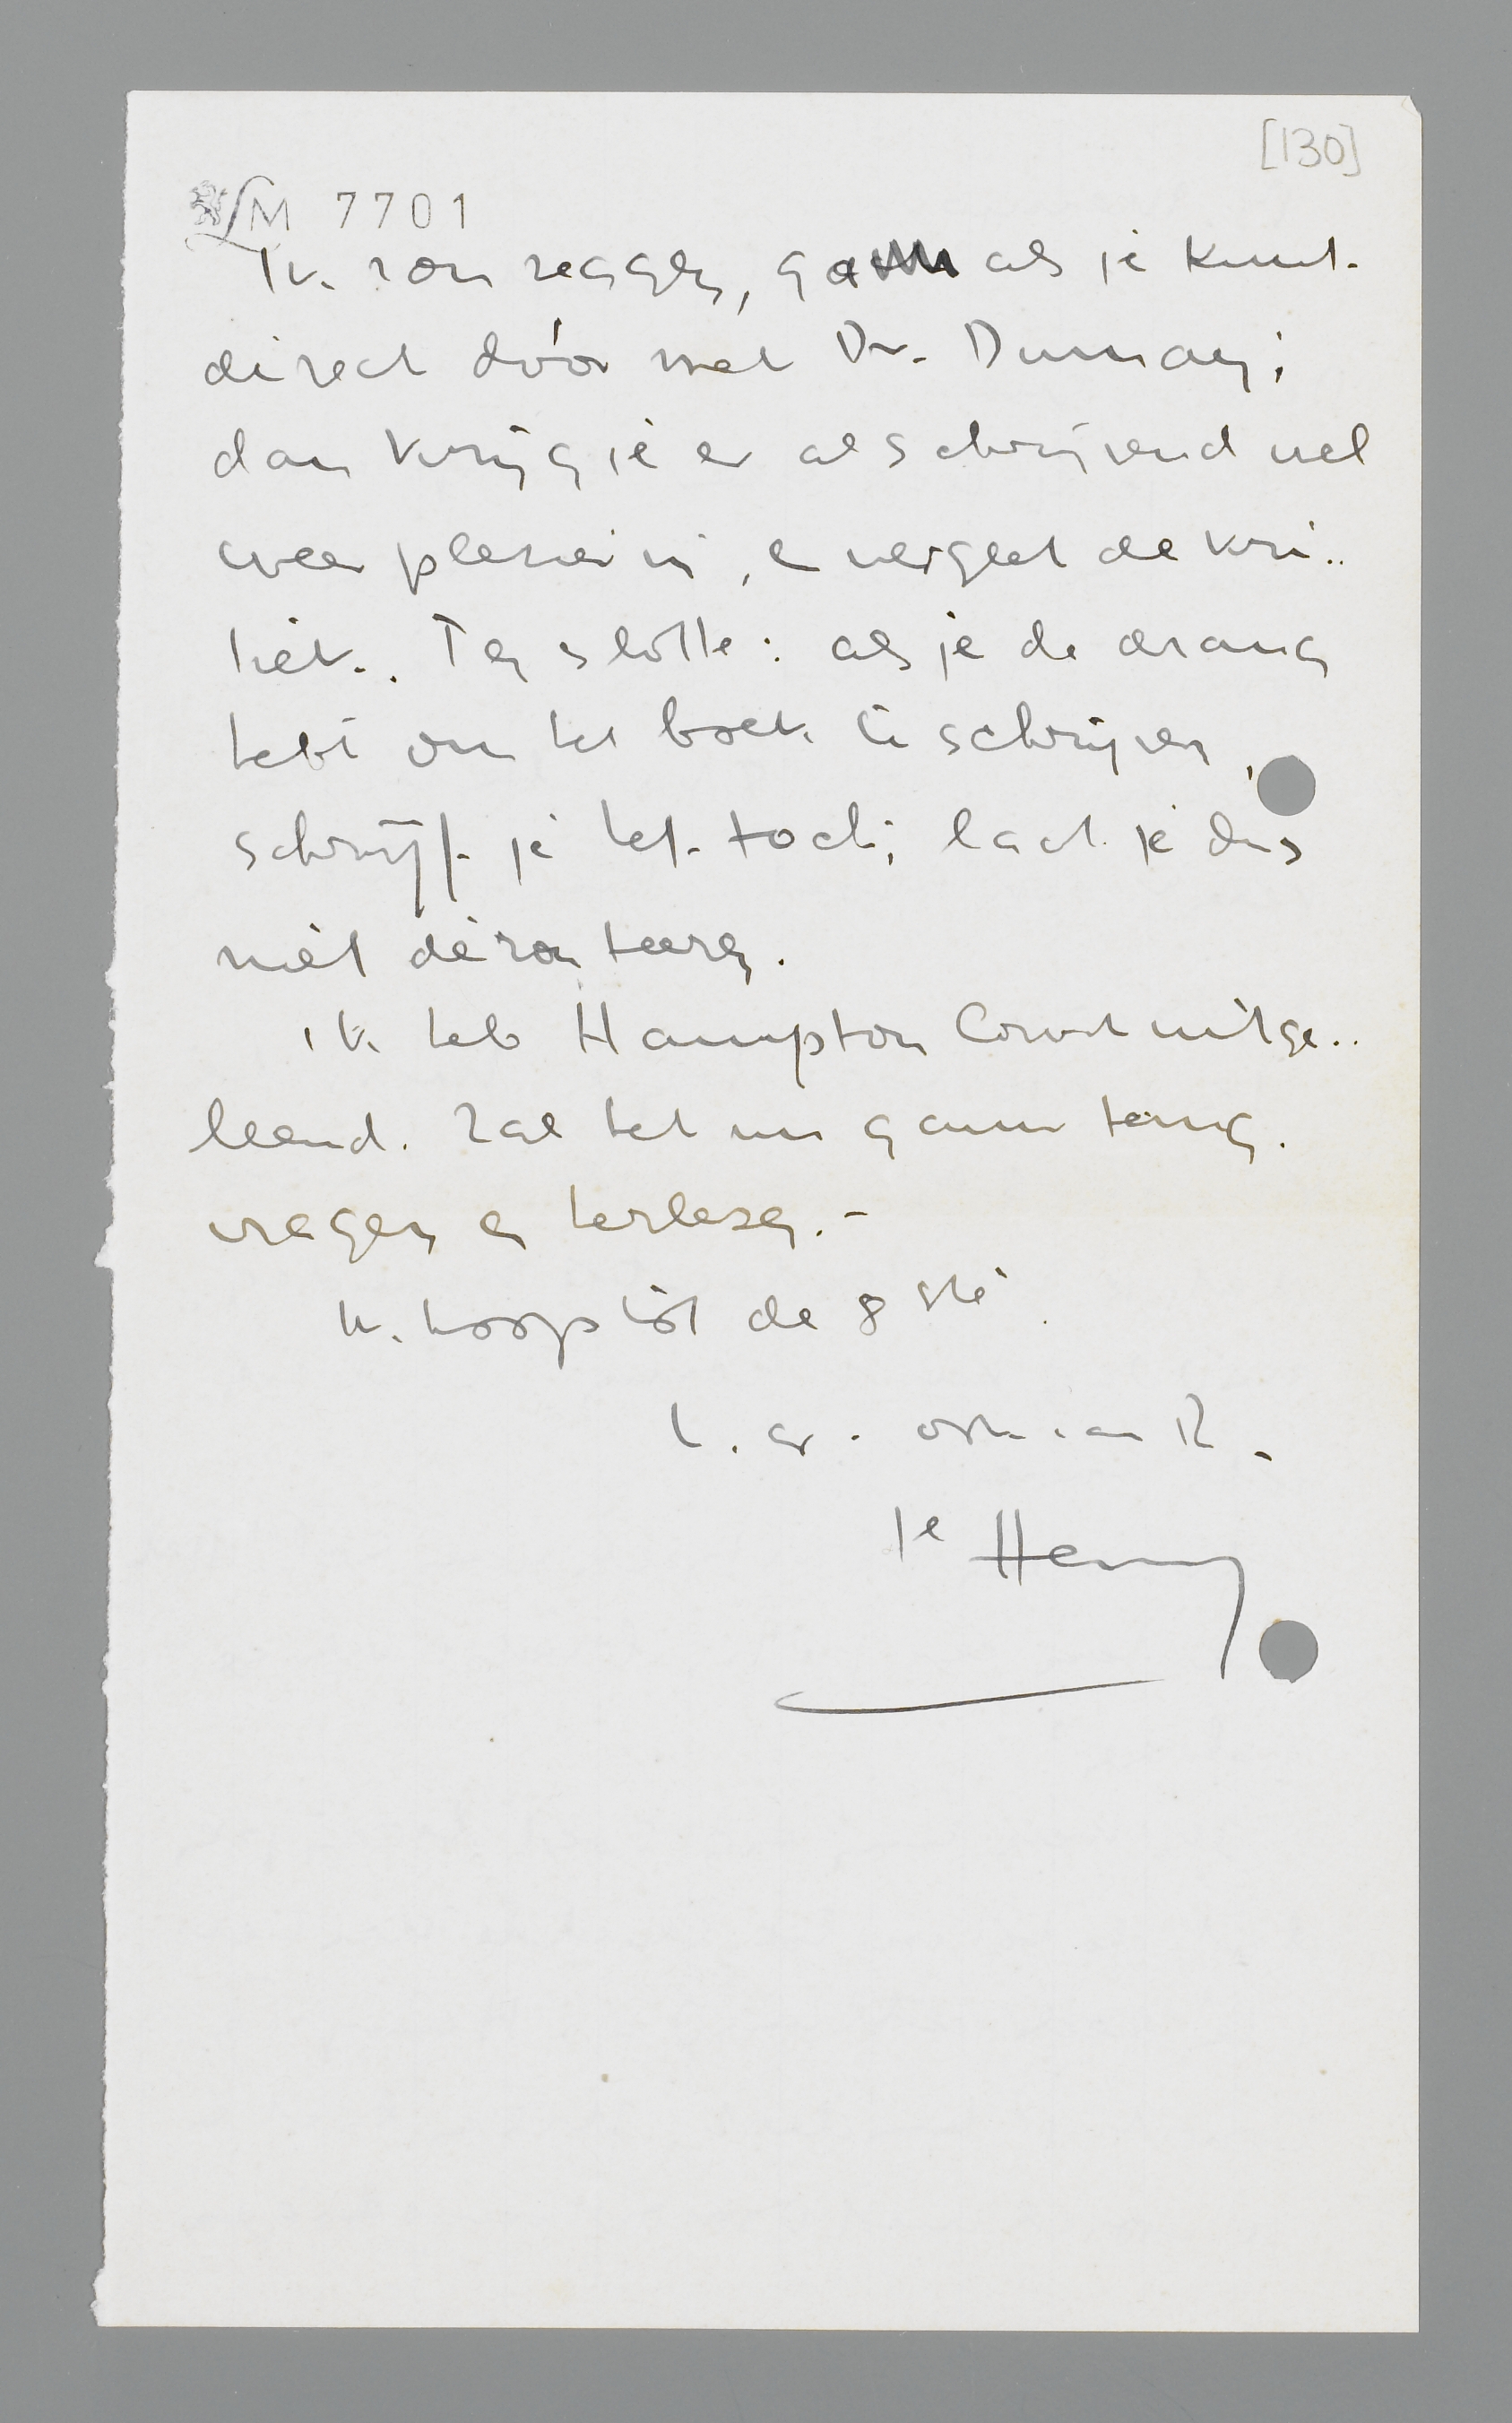 [130]
LM 7701
Ik zou zeggen, ga als je kunt
direct dóór met Dr. Dumay;
dan krijg je er al schrijvend wel
weer plezier in, en vergeet de kri-
tiek. Ten slotte: als je de drang
hebt om het boek te schrijven,
schrijf je het toch; laat je dus
niet dérouteeren.
Ik heb Hampton Court uitge-
leend. Zal het nu gauw terug
vragen en herlezen.-
Ik hoop tot de 8ste.
h. gr. ook van R.
Je Henny